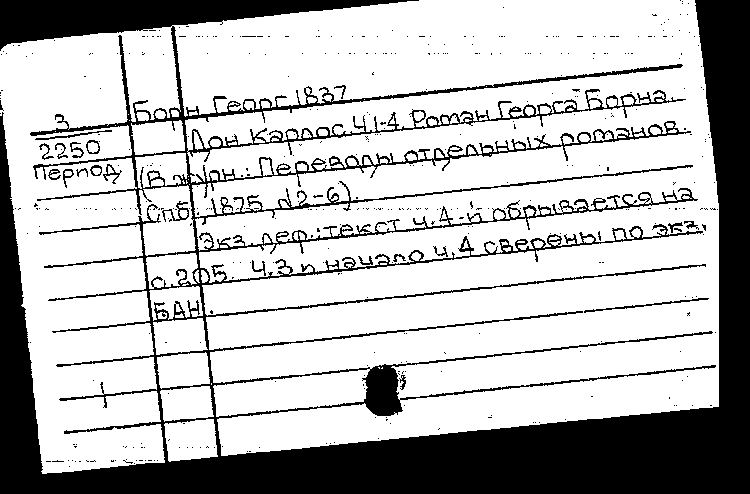 Борн, Георг, 1837
3
2250
Период
Дон Карлос. Ч.1-4. Роман Георга Борна.
(В журн.: Переводы отдельных романов.
Спб., 1875, №2-6).
Экз. деф.: текст ч.4-й обрывается на
с.205. Ч.3 и начало ч.4 сверены по экз.
БАН.